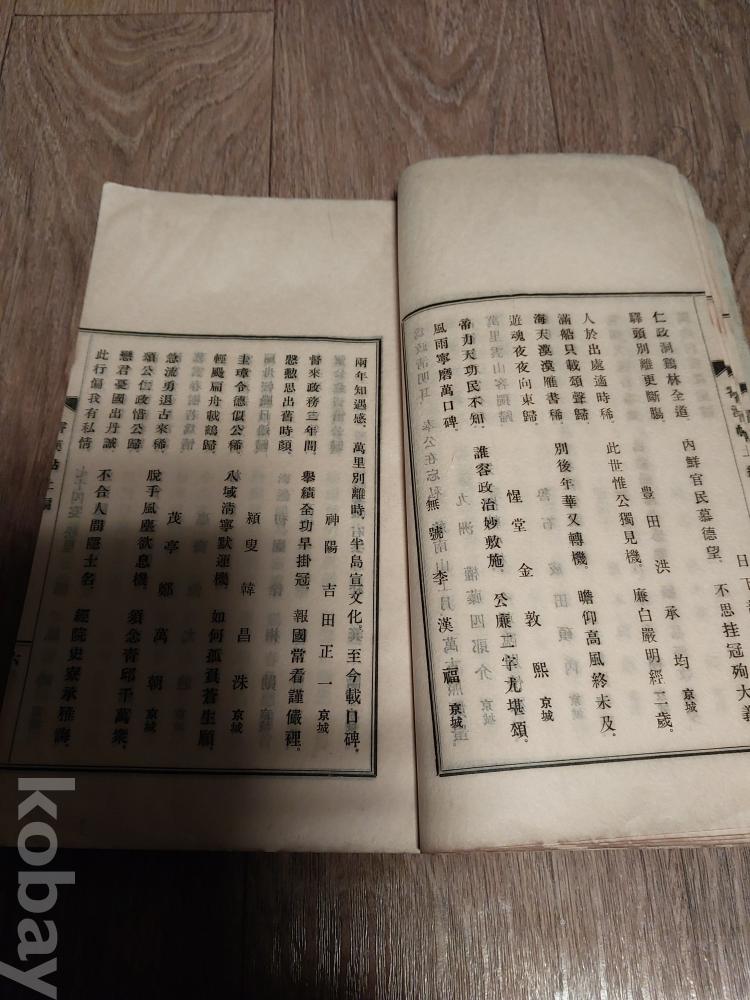 不思挂冠殉大義
仁政洞鶴林全道 內鮮官民慕德望
驛頭別離更斷腸
豊田 洪承均 京城
人於出處適時稀 此世惟公獨見機 廉白嚴明經二歲
滿船只載頌聲歸
海天漠漠雁書稀 別後年華又轉機 瞻仰高風終未及
遊魂夜夜向東歸
惺堂 金敦熙 京城
帝力天功民不知 誰容政治妙敷施 公廉二字尤堪頌
風雨寧磨萬口碑
無號 李漢福 京城
兩年知遇感 萬里別離時 半島宣文化 至今載口碑
神陽 吉田正一 京城
督來政務三年間 擧績全功早掛冠 報國常看謹儼裡
懸懃思出舊時顏
潁叟 韓昌洙 京城
圭璋令德似公稀 八域淸寧默運機 如何孤負蒼生願
輕颺扁舟載鶴歸
茂亭 鄭萬朝 京城
急流勇退古來稀 脫手風塵欲息機 須念靑邱千萬衆
頌公仁政惜公歸
戀君憂國出丹誠 不合人間隱士名 經院史寮承雅誨
此行偏我有私情
kobay